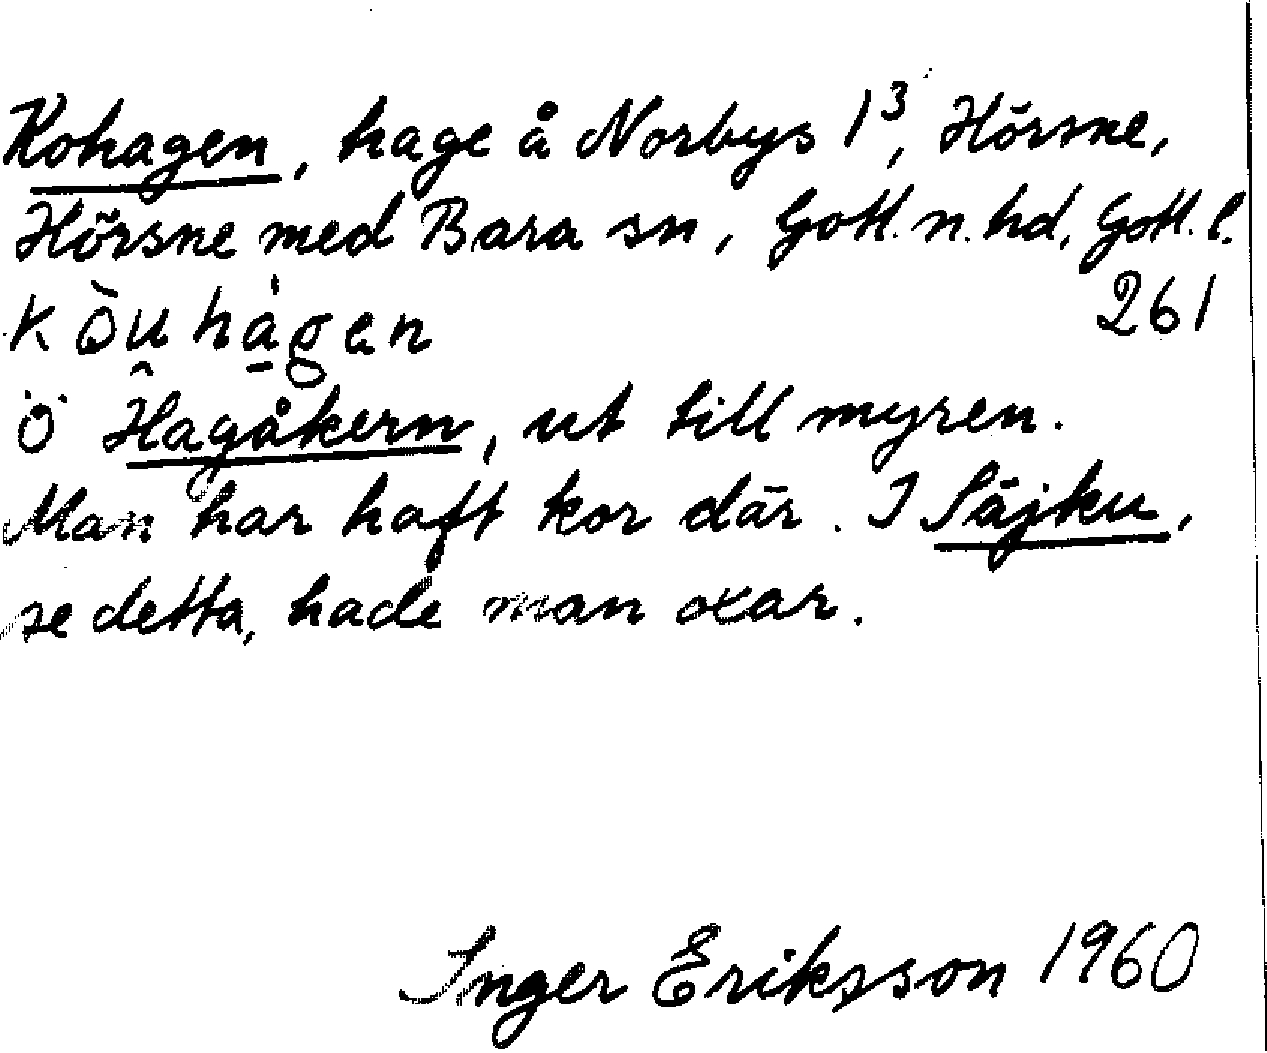 Kohagen, hage å Norbys 1³, Hörsne,
Hörsne med Bara sn, Gotl. n. hd, Gotl. l.
261
kòu̯hǻ̱gen
Ö Hagåkern, ut till myren.
Man har haft kor där. I Säjku,
se detta, hade man oxar.
Inger Eriksson 1960